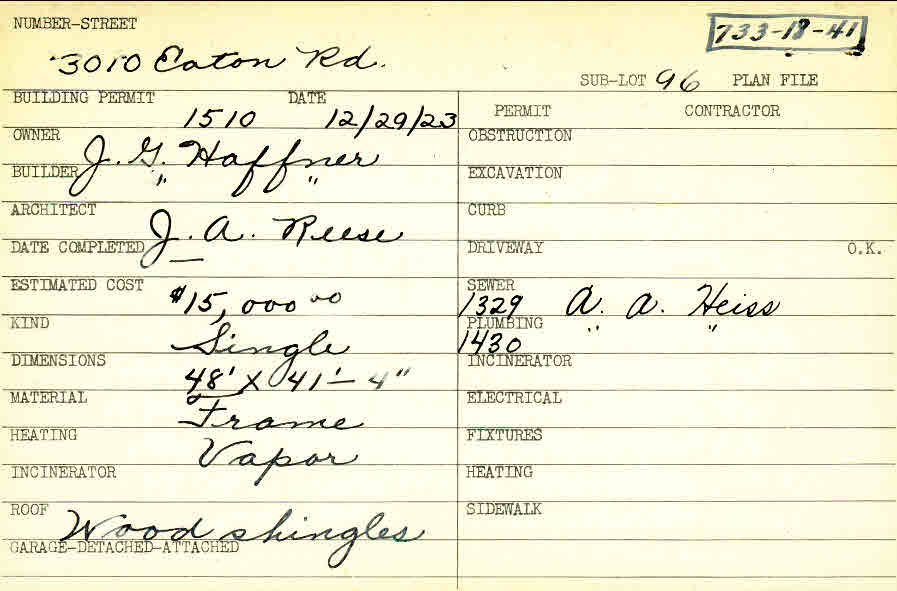 NUMBER-STREET
733-18-41
3010 Eaton Rd.
SUB-LOT 96 PLAN FILE
BUILDING PERMIT DATE
1510 12/29/23
PERMIT CONTRACTOR
OWNER J. G. Haffner
OBSTRUCTION
BUILDER " "
EXCAVATION
ARCHITECT J. A. Reese
CURB
DATE COMPLETED —
DRIVEWAY O.K.
ESTIMATED COST $15,000 00
SEWER
1329 A. A. Heiss
KIND Single
PLUMBING " "
1430
DIMENSIONS 48' X 41'-4"
INCINERATOR
MATERIAL Frame
ELECTRICAL
HEATING Vapor
FIXTURES
INCINERATOR
HEATING
ROOF Wood shingles
SIDEWALK
GARAGE-DETACHED-ATTACHED